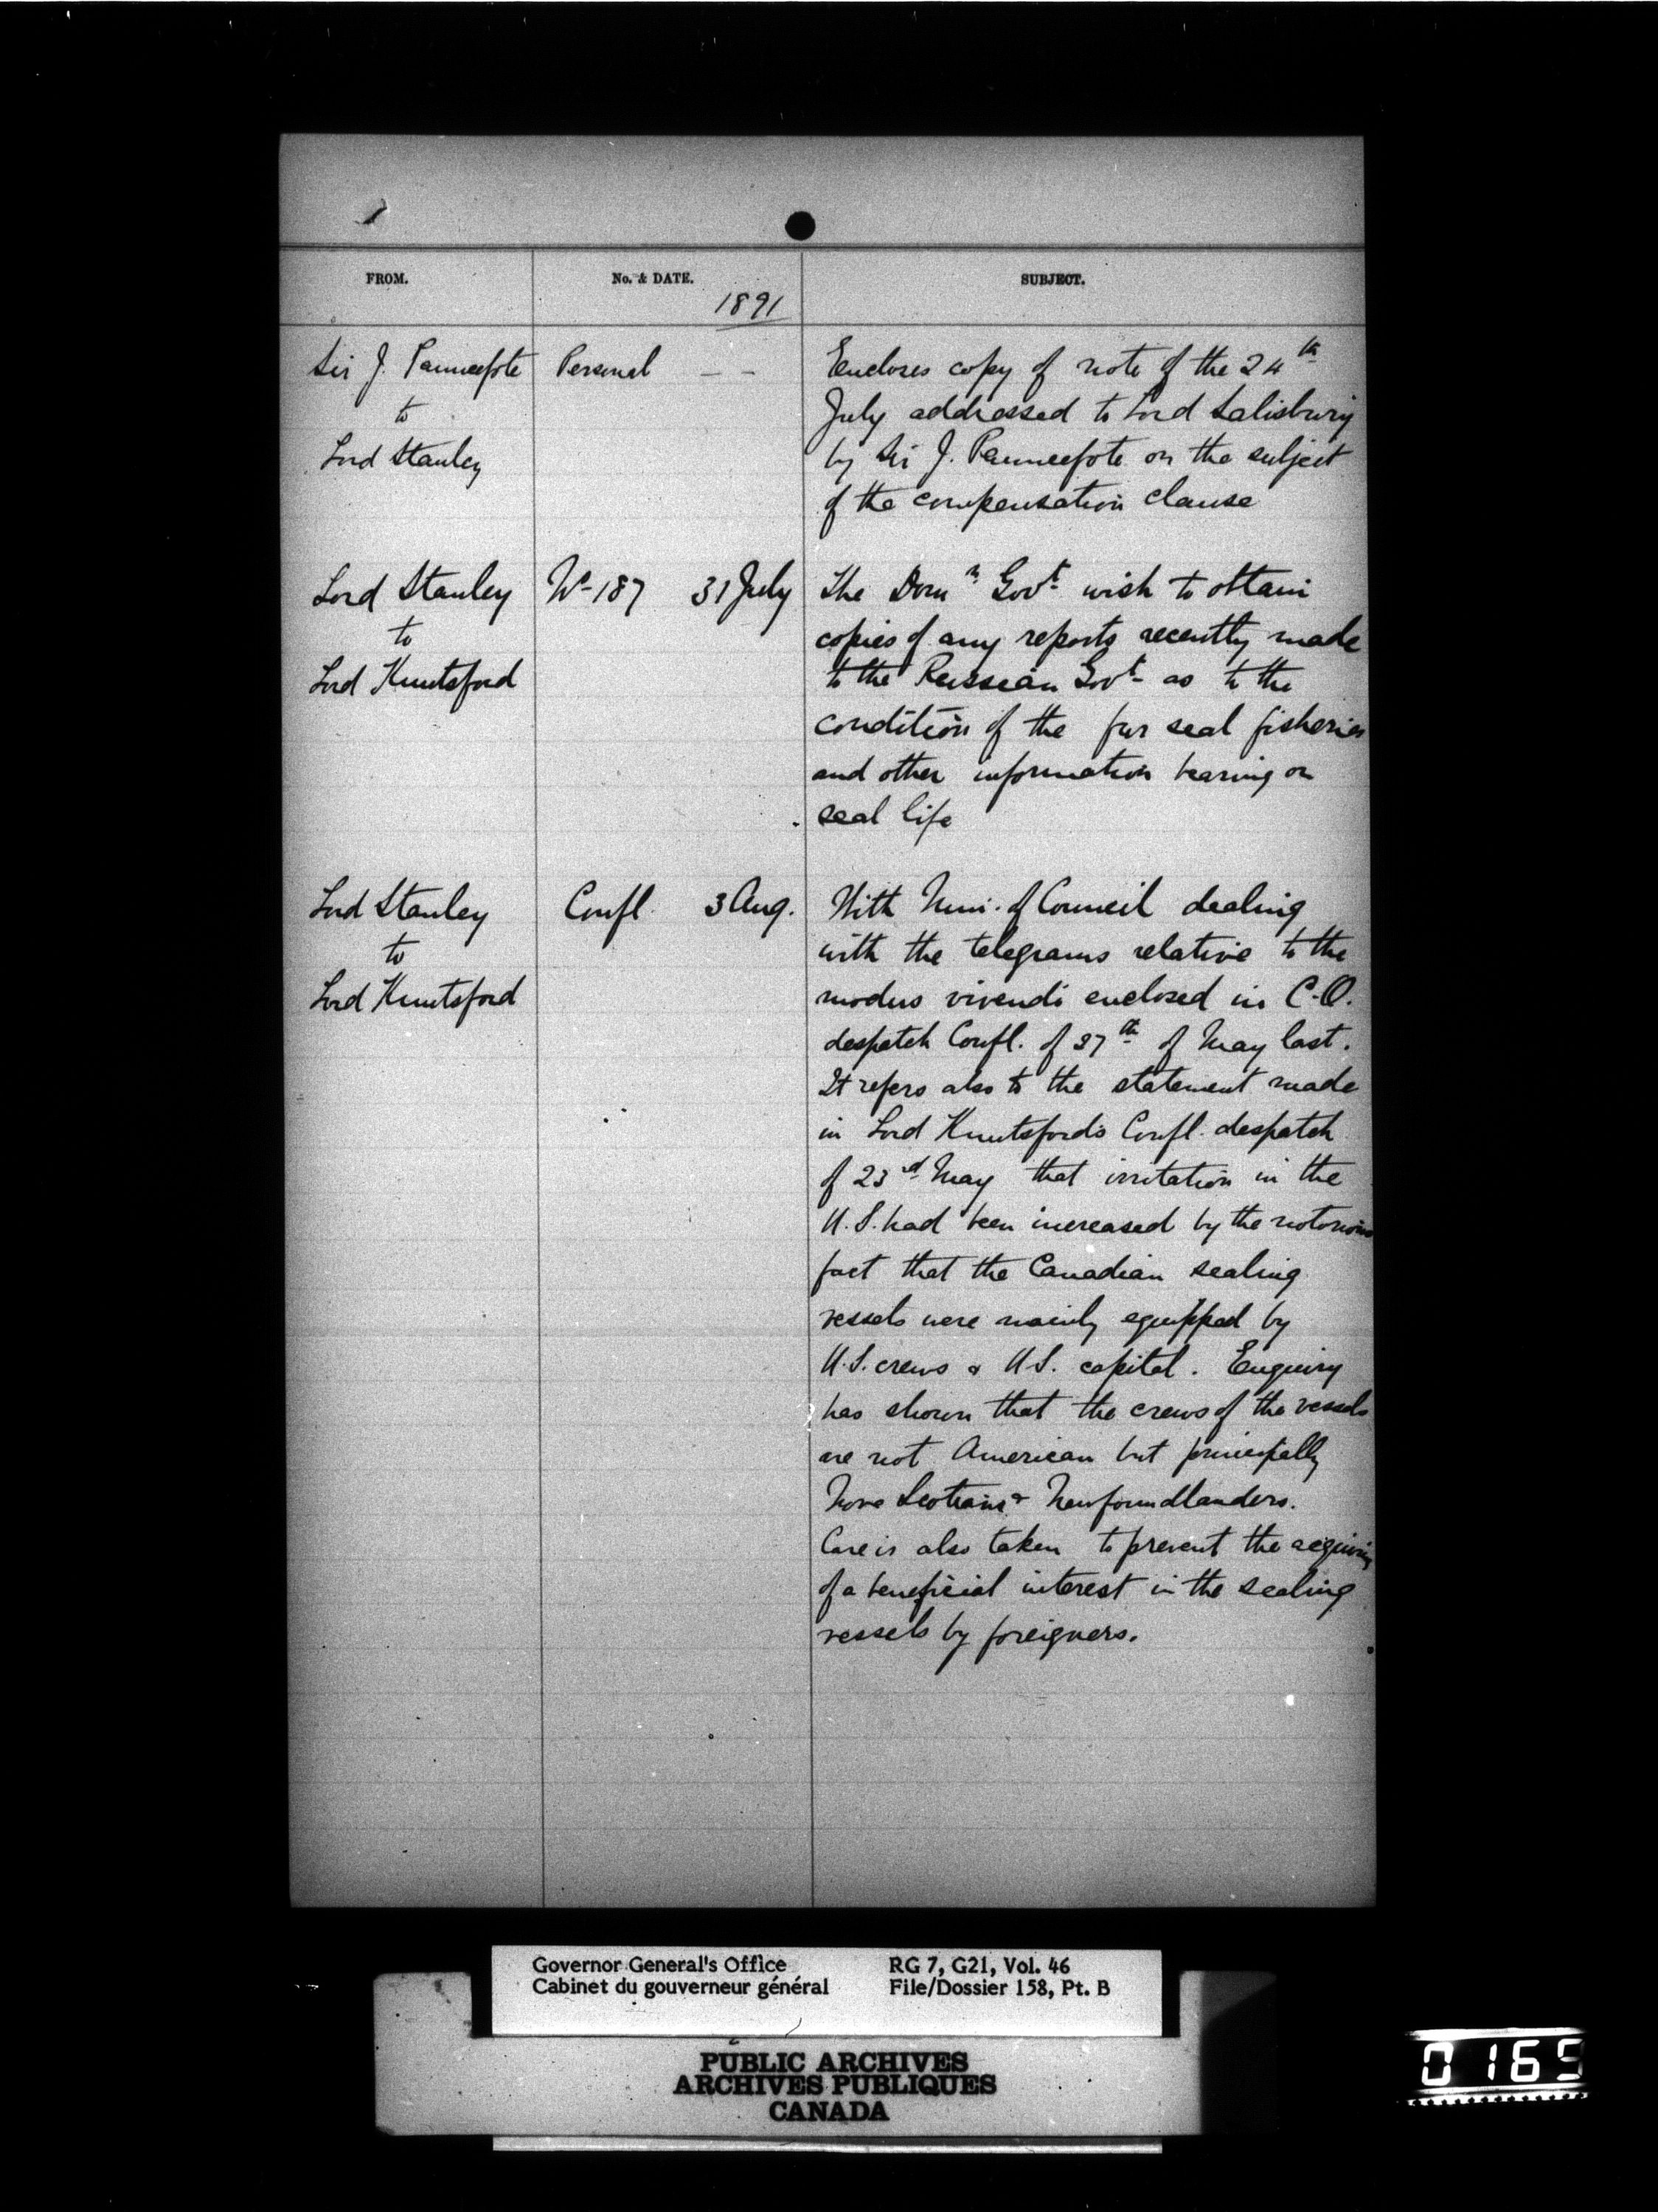 FROM. No. & DATE. SUBJECT.
1891
Sir J. Pauncefote Personal — — Encloses copy of note of the 24th
to July addressed to Lord Salisbury
Lord Stanley by Sir J. Pauncefote on the subject
of the compensation clause
Lord Stanley No-187 31 July The Domn Govt wish to obtain
to copies of any reports recently made
Lord Knutsford to the Russian Govt as to the
condition of the fur seal fisheries
and other information bearing on
seal life
Lord Stanley Confl. 3 Aug. With Min. of Council dealing
to with the telegrams relative to the
Lord Knutsford modus vivendi enclosed in C.O.
despatch Confl. of 27th of May last.
It refers also to the statement made
in Lord Knutsford's Confl. despatch
of 23rd May that irritation in the
U.S. had been increased by the notorious
fact that the Canadian sealing
vessels were mainly equipped by
U.S. crews & U.S. capital. Enquiry
has shown that the crews of the vessels
are not American but principally
Nova Scotians & Newfoundlanders.
Care is also taken to prevent the acquiring
of a beneficial interest in the sealing
vessels by foreigners.
Governor General's Office RG 7, G21, Vol. 46
Cabinet du gouverneur général File/Dossier 158, Pt. B
PUBLIC ARCHIVES
ARCHIVES PUBLIQUES
CANADA
0165